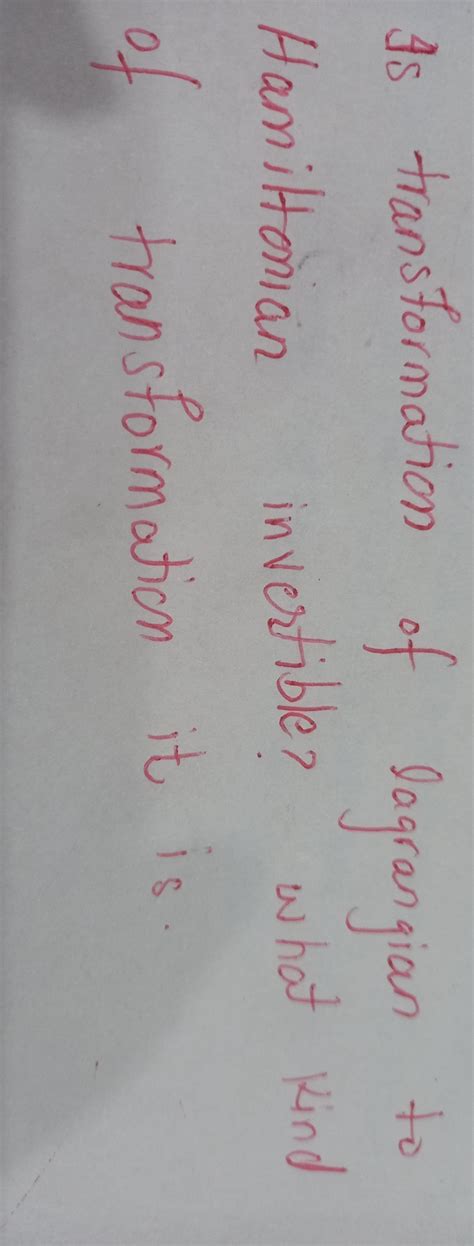 Is transformation of lagrangian to
Hamiltonian invertible? what kind
of transformation it is.